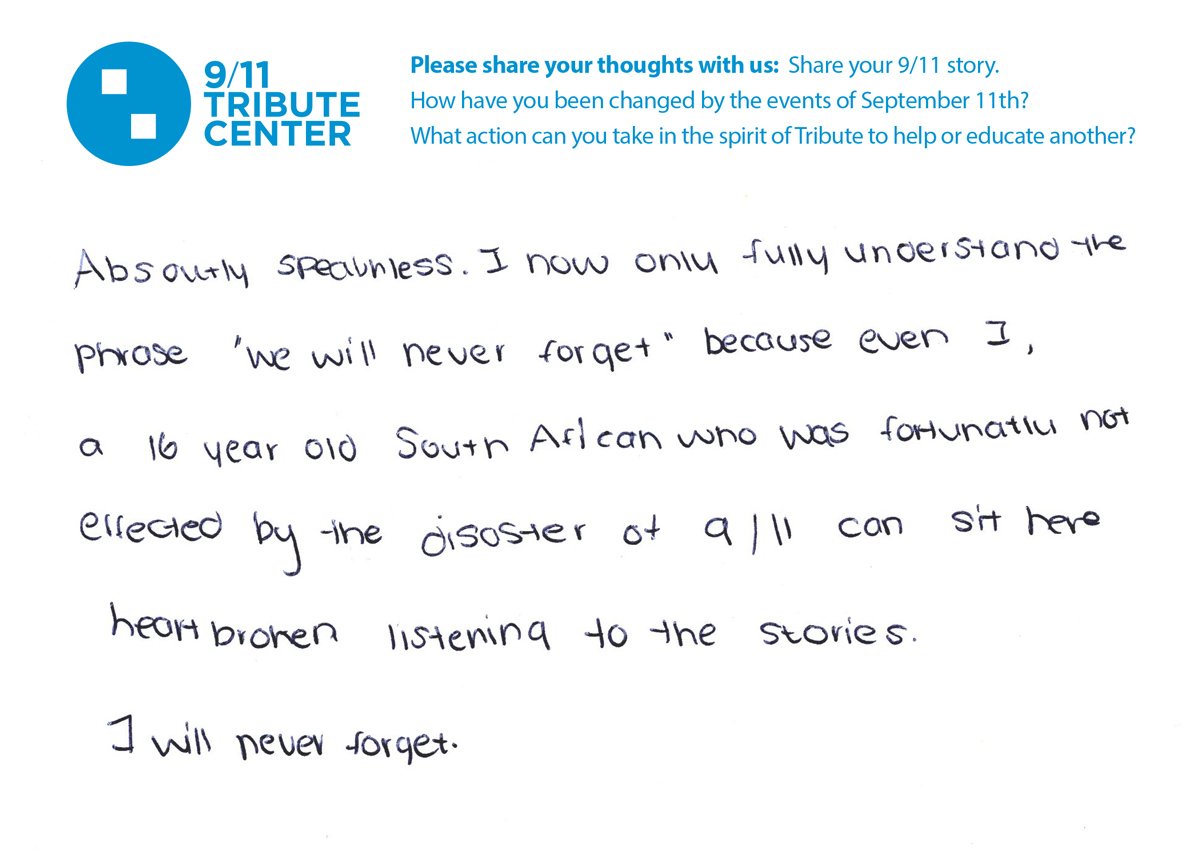 9/11
TRIBUTE
CENTER
Please share your thoughts with us: Share your 9/11 story.
How have you been changed by the events of September 11th?
What action can you take in the spirit of Tribute to help or educate another?
Absoutly speahless. I now only fully understand the
phrase "we will never forget" because even I,
a 16 year old South African who was fortunatly not
effected by the disaster of 9/11 can sit here
heartbroken listening to the stories.
I will never forget.